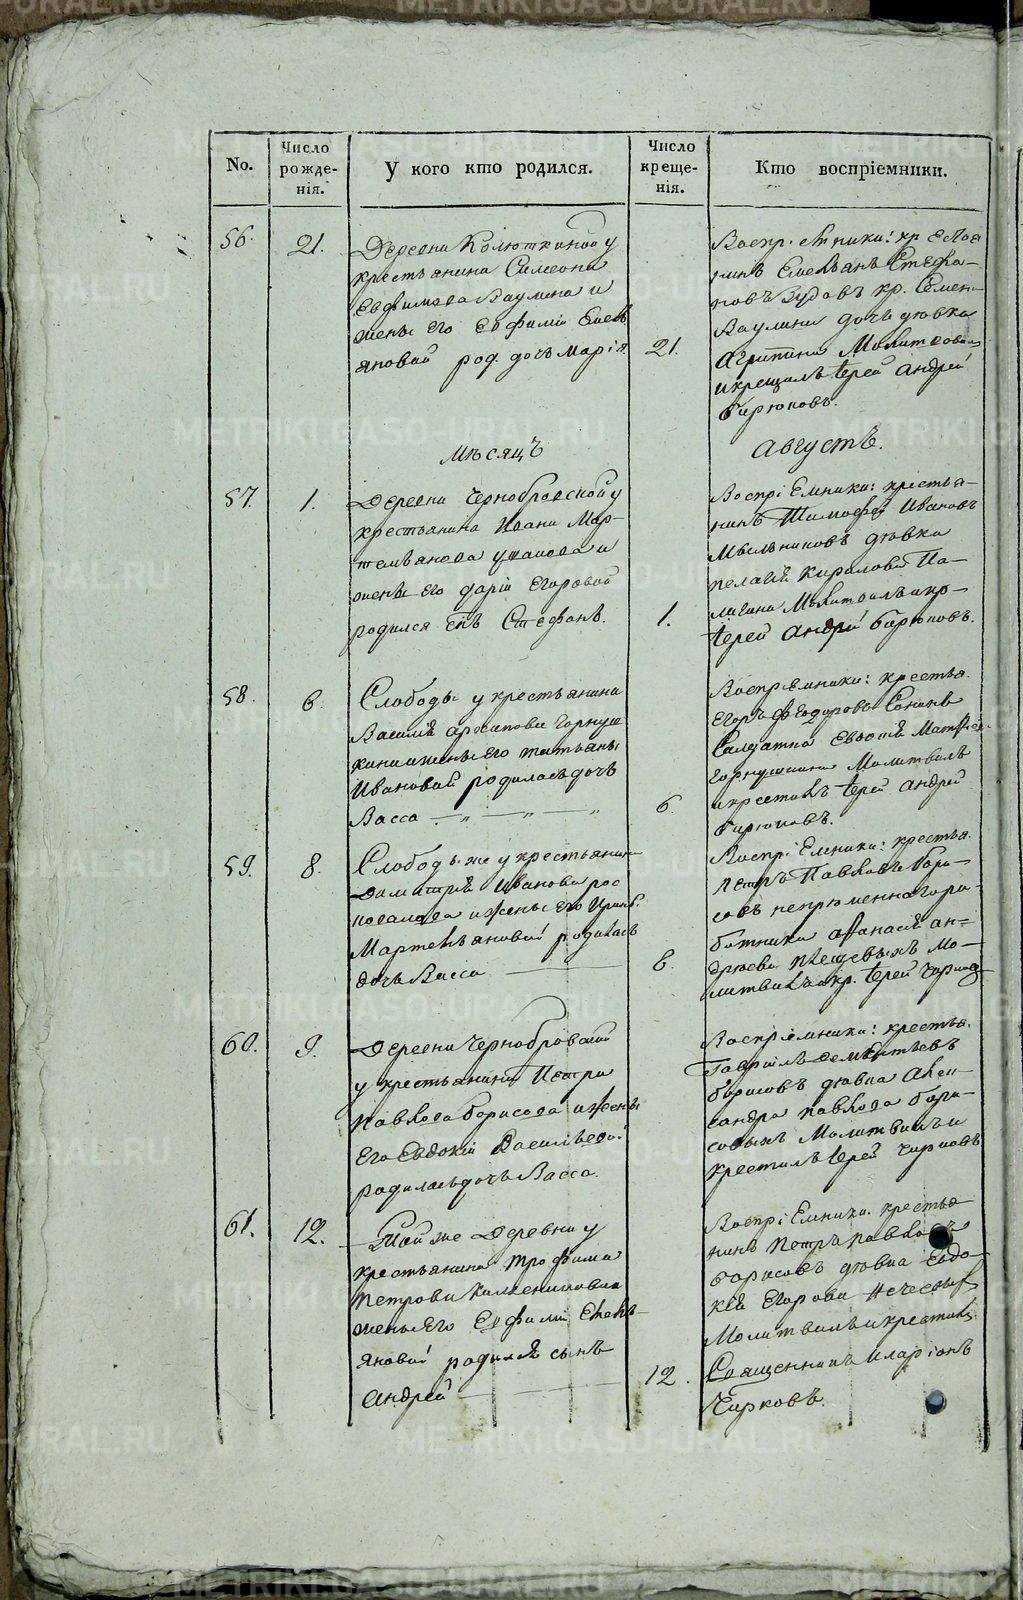 No.
Число рожде-нія.
У кого кто родился.
Число креще-нія.
Кто воспріемники.
56.
21.
Деревни Колюткиной у
крестьянина Симеона
Евфимова Ваулина и
жены его Евфиміи Емель
яновой род. дочь Марія
21.
Воспріемники: кр
Емельянъ Стефа-
новъ Зудовъ кр. Семена
Ваулина дочь девка
Агрипина Молитвовалъ
и крещалъ Іерей Андрей
Бирюковъ.
Мѣсяцъ
Августъ.
57.
1.
Деревни Чернобровской у
крестьянина Ивана Мар-
темьянова Ушакова и
жены его Дарьи Егоровой
родился сынъ Стефанъ.
1.
Воспріемники: крестья-
нинъ Тимофей Ивановъ
Мѣльниковъ девка
Пелагія Кирилова Па-
Молитвилъ и кр-
Іерей Андрей Бирюковъ.
58.
6.
Слободы у крестьянина
Василія Архипова Горнуш
кина и жены его Татьяны
Ивановой родилась дочь
Васса
6.
Воспріемники: крестья.
Егоръ Феодоровъ Сонинъ
Салдатка Евдокія Матфѣе.
Горнушкина Молитвилъ
и крестилъ Іерей Андрей
Бирюковъ.
59.
8.
Слободы же у крестьянина
Димитрія Иванова
и жены его Ирины
Мартемьяновой родилась
дочь Васса
8.
Воспріемники: крестья.
Петръ Павловъ Бори-
совъ непременнаго ра-
ботника Афанасія Ан-
дреева Клещевыхъ Мо-
литвилъ и кр. Іерей Чирков
60.
9.
Деревни Чернобровской
у крестьянина Петра
Павлова Борисова и жены
его Евдокіи Васильевой
родилась дочь Васса.
Воспріемники: крестья.
Гавріилъ Дементьевъ
Борисовъ девка Алек-
сандра Павлова Бори-
совыхъ Молитвилъ и
крестилъ Іерей Чирковъ
61.
12.
Той же деревни у
крестьянина Трофима
Петрова
жены его Евфиміи Емель-
яновой родился сынъ
Андрей
12.
Воспріемники. крестья
нинъ Петръ Павловъ
Борисовъ девка Евдо-
кія Егорова
Молитвилъ и крестилъ
Священникъ Иларіонъ
Чирковъ.
METRIKI.GASO-URAL.RU